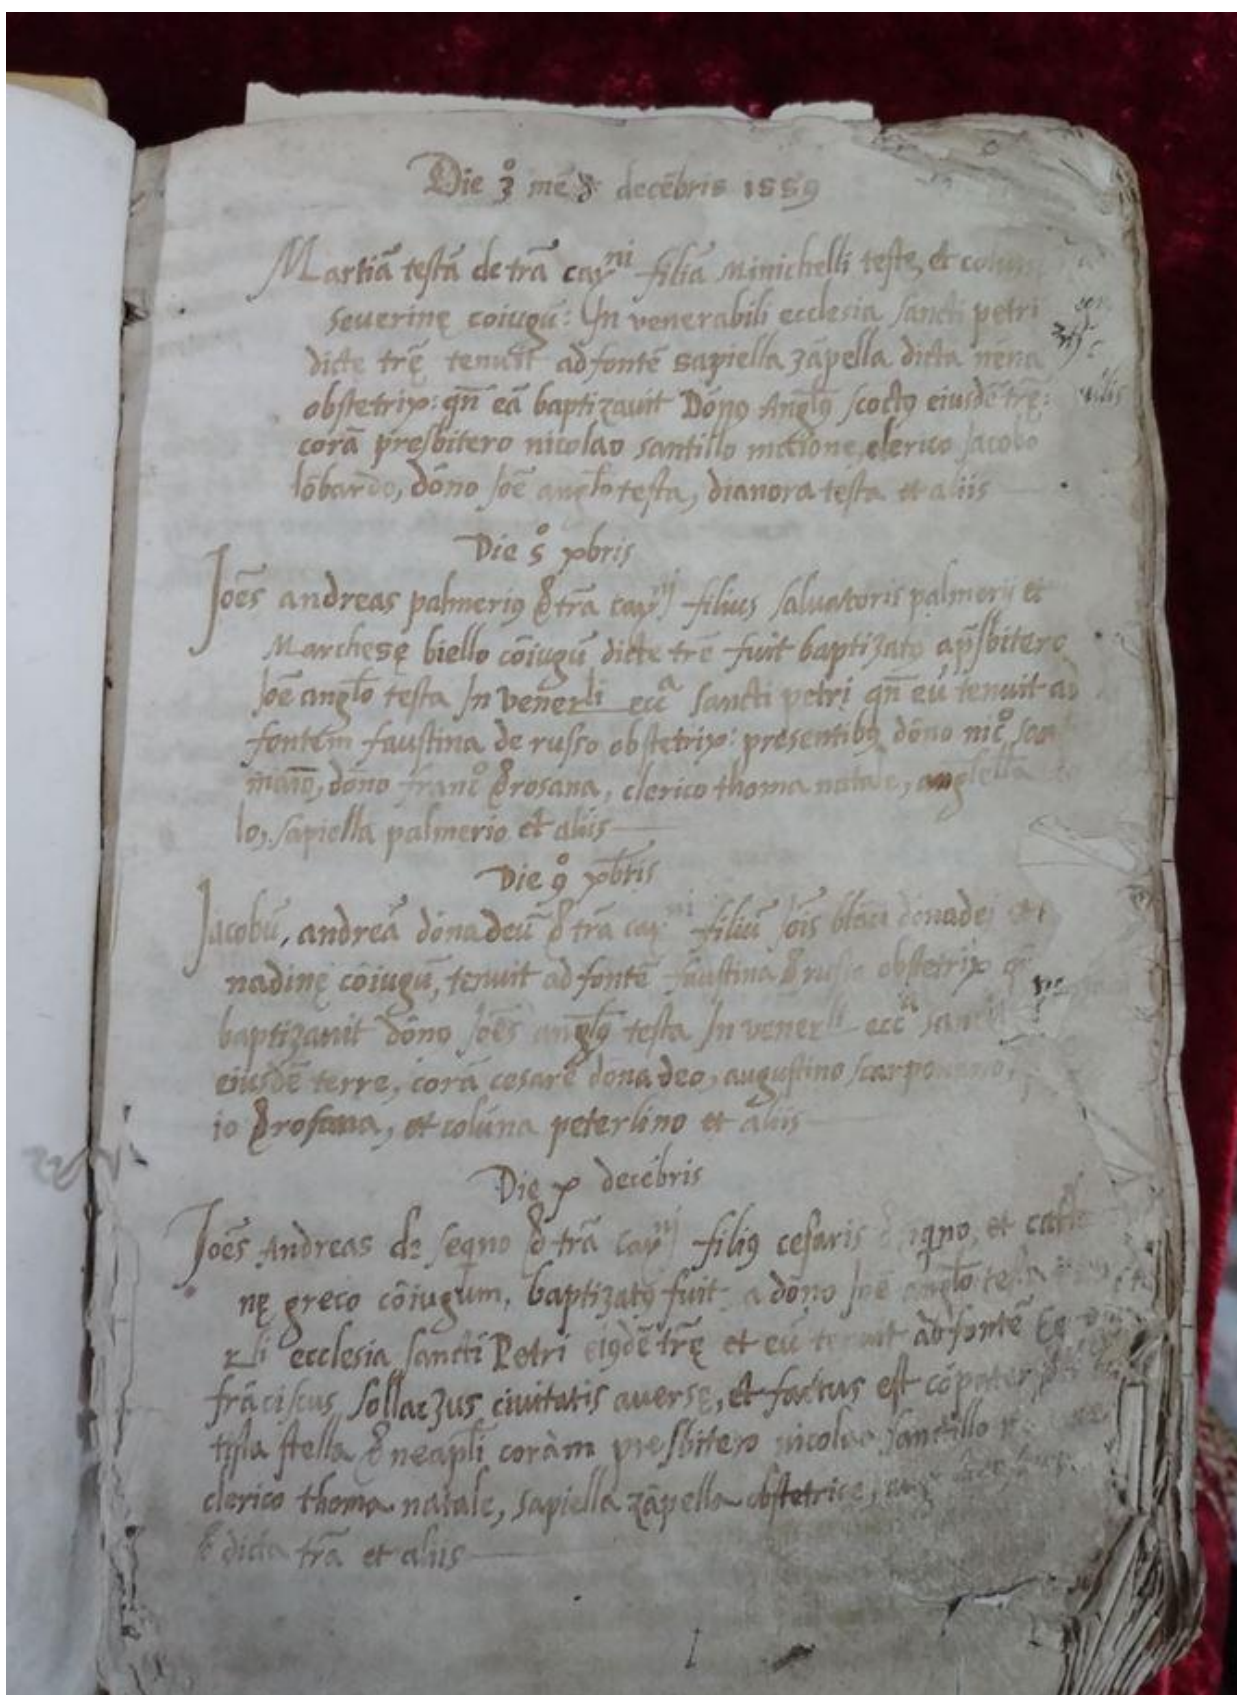 Die 3° mē d̄ decēbris 1559
Martiā testā de trā cay^ni filiā Minichelli teste, et
seuerinę cōiugū: In venerabili ecclesia sancti petri
dicte trę tenuit ad fontē sapiella zāpella dicta nēna
obstetrix: qn̄ eā baptizavit Dōnꝯ Angl̄ꝯ scoctꝯ eiusdē trę:
corā presbitero nicolao santillo clerico Jacobo
lōbardo, dōno Joē angl̄o testa, dianora testa et aliis
Die 5° xbris
Joēs andreas palmeriꝯ d̄ trā cay^ni filius saluatoris palmerij et
Marchesę biello cōiugū dicte trē fuit baptizatꝯ a p̄sbitero
Joē angl̄o testa In vener̄li ecc^a sancti petri qn̄ eū tenuit ad
fontem faustina de russo obstetrix: presentibꝯ dōno nic°
dōno franc° d̄ rosana, clerico thoma natale,
lo, sapiella palmerio et aliis
Die 9° xbris
Jacobū, andreā dōnadeū d̄ trā cay^ni filiū Jōis donadei et
nadinę cōiugū, tenuit ad fontē faustina d̄ russo obstetrix
baptizauit dōnꝯ Joēs angl̄ꝯ testa In vener̄li ecc^a
eiusdē terre, corā cesarē dōnadeo, augustino
io d̄ rosana, et colūna peterlino et aliis
Die x decēbris
Joēs Andreas de seqno d̄ trā cay^ni filiꝯ cesaris et
nę greco cōiugum, baptizatꝯ fuit a dōno Joē angl̄o testa
r̄li ecclesia sancti Petri eiꝯdē trę et eū tenuit ad fontē
frāciscus sollazzus ciuitatis auersę, et factus est cōpater
tista stella d̄ neapl̄i coràm presbitero nicolao santillo
clerico thoma natale, sapiella zāpella obstetrice,
dicta trā et aliis